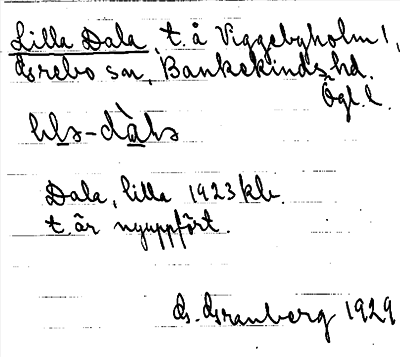 Lilla Dala, t. å Viggebyholm 1,
Örebo sn, Bankekinds hd.
Ögl. l.
lıla-dàla
Dala, lilla 1923 klr.
t. är nyuppfört.
G. Granberg 1929